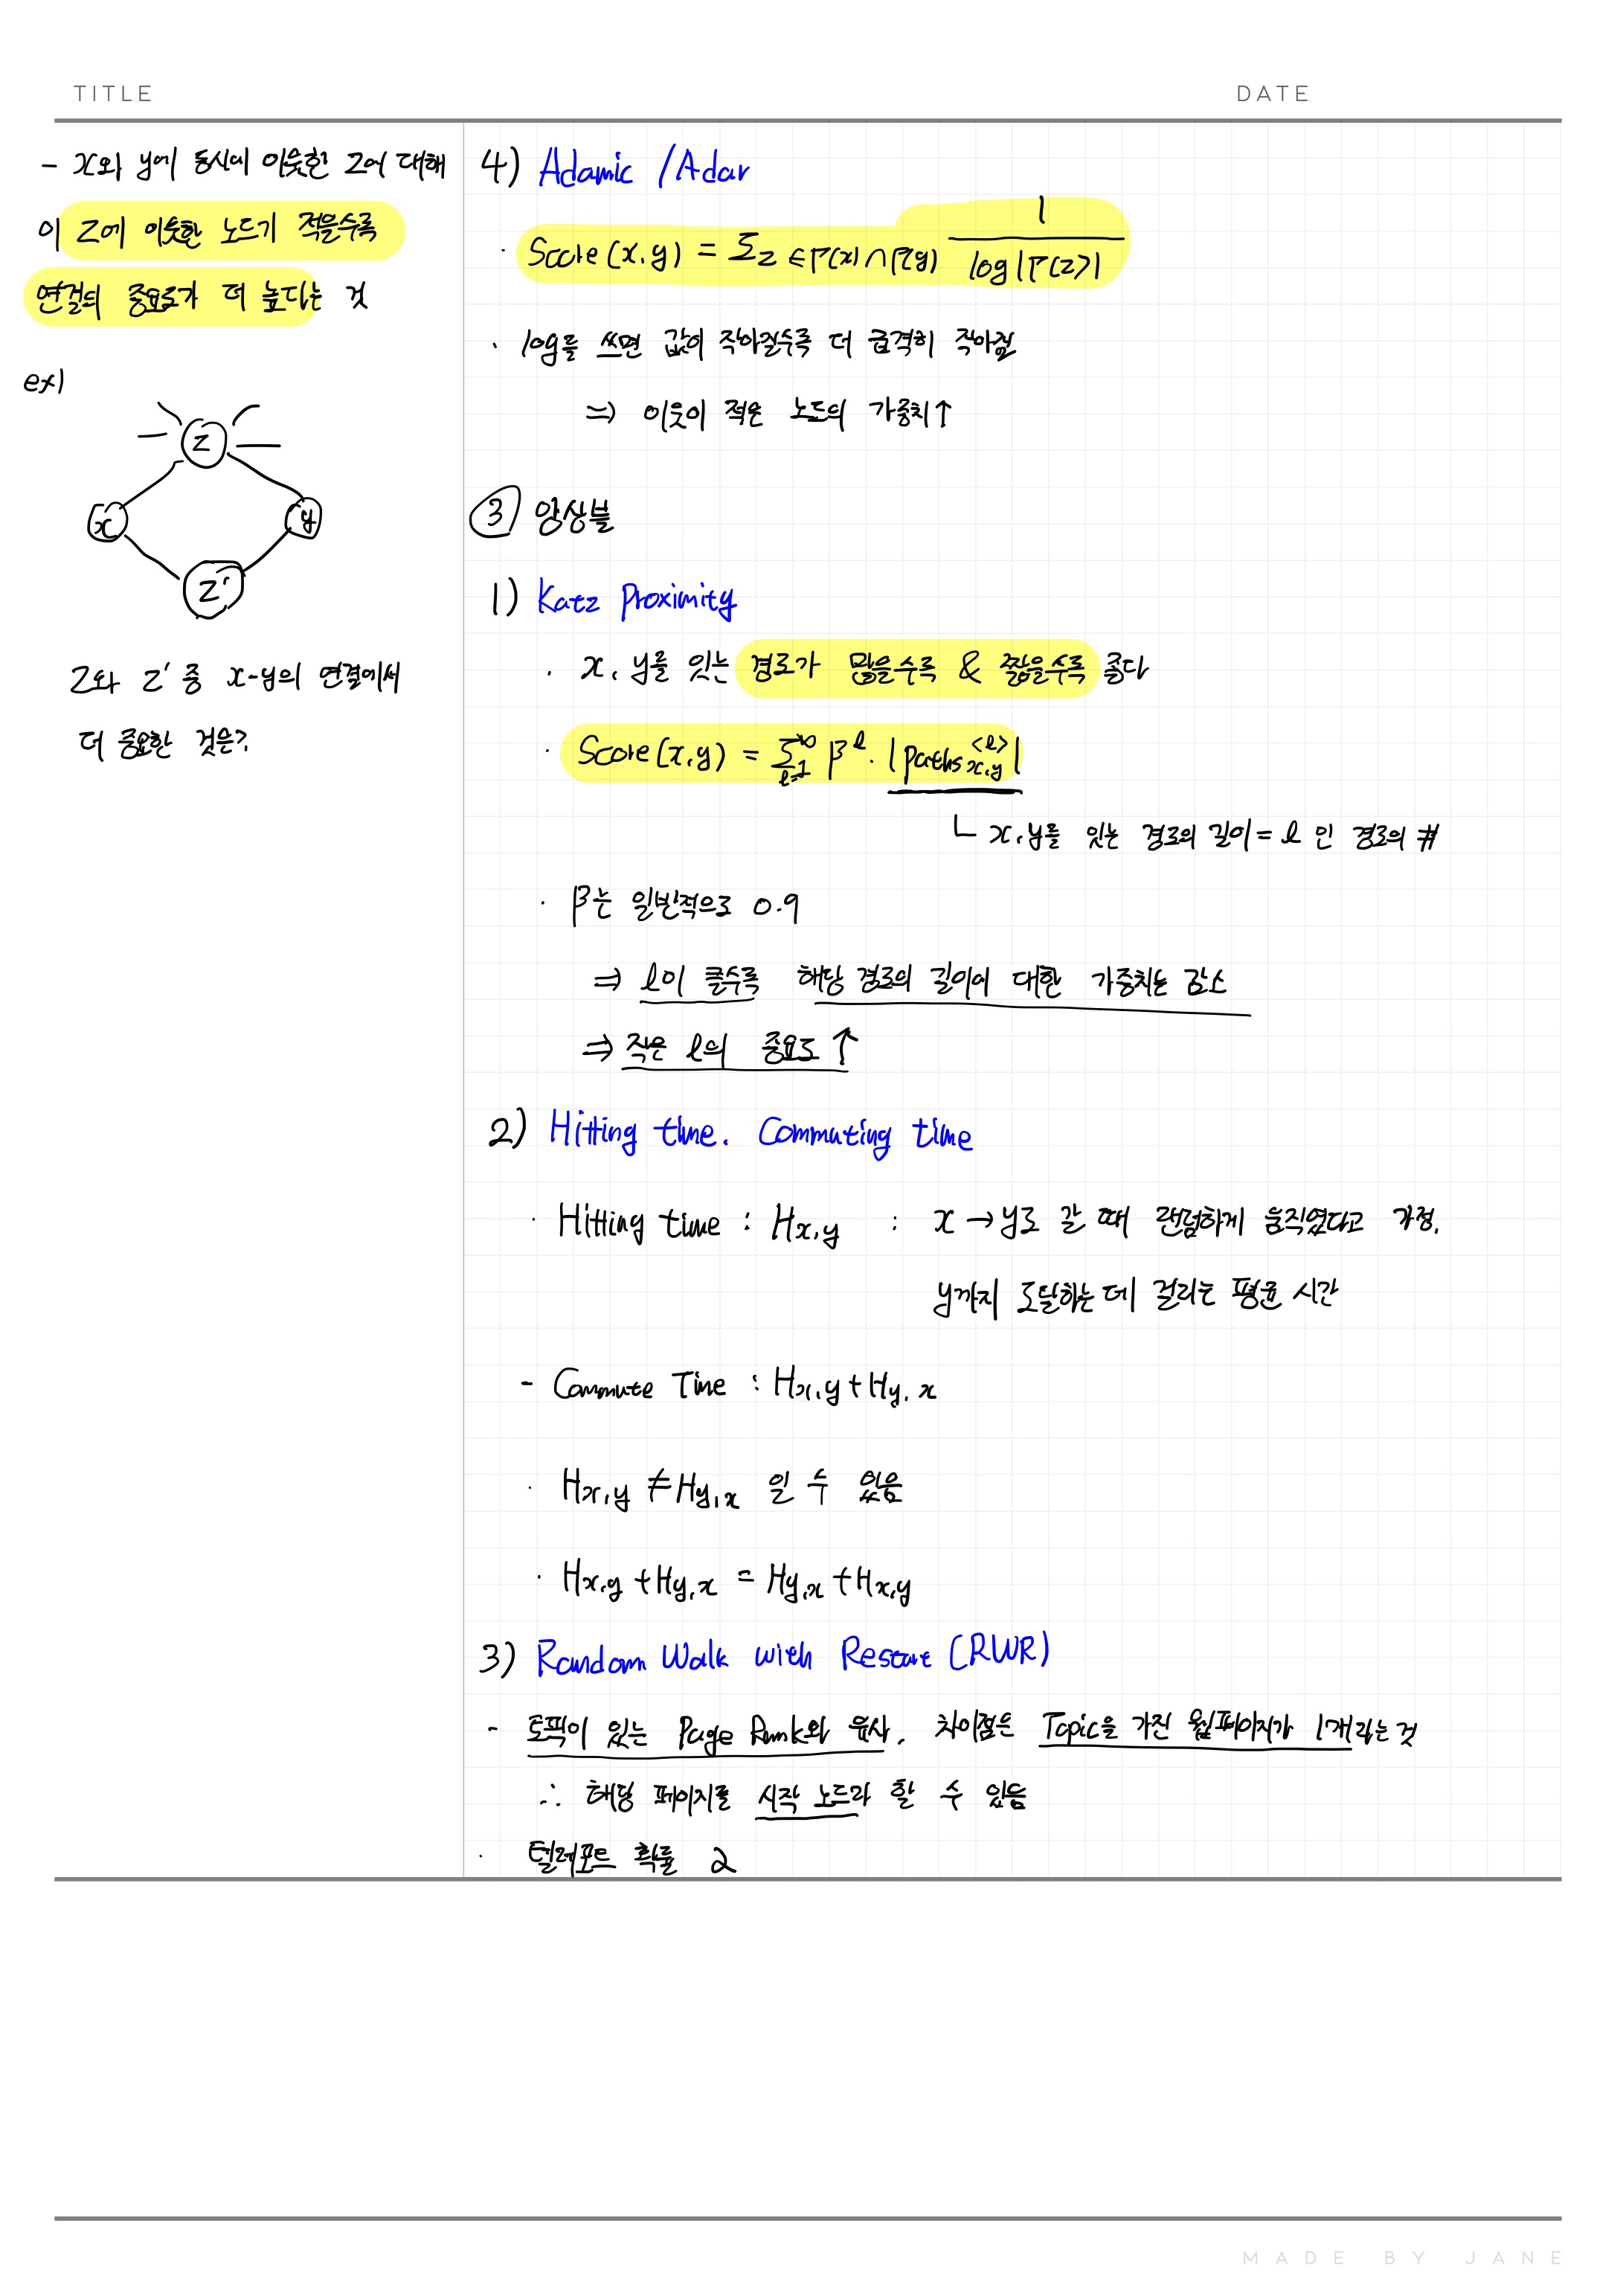 TITLE
DATE
- x와 y에 동시에 이웃한 z에 대해
이 z에 이웃한 노드기 적을수록
연결의 중요로가 더 높다는 것
ex)
z
x
y
z'
z와 z' 중 x-y의 연결에서
더 중요한 것은?
4) Adamic / Adar
· Score(x,y) = Σz∈Γ(x)∩Γ(y) 1 / log|Γ(z)|
· log를 쓰면 값이 작아질수록 더 급격히 작아짐
⇒ 이웃이 적은 노드의 가중치↑
③ 앙상블
1) Katz Proximity
· x, y를 잇는 경로가 많을수록 & 짧을수록 좋다
· Score(x,y) = Σ_{l=1}^{∞} β^l · |paths_{x,y}^{<l>}|
ㄴ x,y를 잇는 경로의 길이 = l 인 경로의 #
· β는 일반적으로 0.9
⇒ l이 클수록 해당 경로의 길이에 대한 가중치는 감소
⇒ 작은 l의 중요도 ↑
2) Hitting time. Commuting time
· Hitting time : Hx,y : x→y로 갈 때 랜덤하게 움직였다고 가정.
y까지 도달하는 데 걸리는 평균 시간
- Commute Time : Hx,y + Hy,x
· Hx,y ≠ Hy,x 일 수 있음
· Hx,y + Hy,x = Hy,x + Hx,y
3) Random Walk with Restart (RWR)
- 토픽이 있는 Page Rank와 유사. 차이점은 Topic을 가진 웹페이지가 1개라는 것
∴ 해당 페이지를 시작 노드라 할 수 있음
· 텔레포트 확률 α
MADE BY JANE